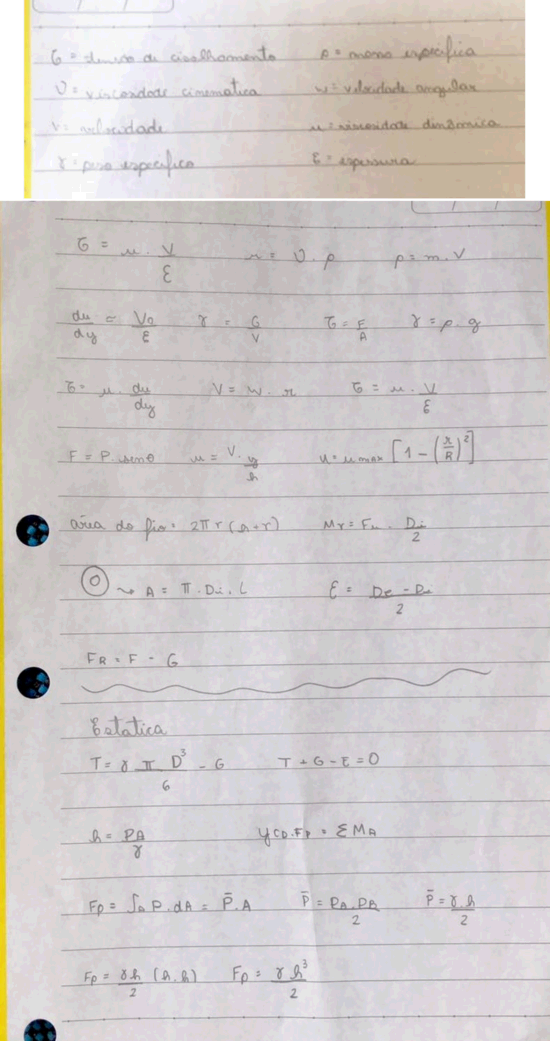 σ = tensão de cisalhamento ρ = massa específica
υ = viscosidade cinemática w = velocidade angular
v = velocidade μ = viscosidade dinâmica
γ = peso específico ε = espessura
σ = μ . V/ε μ = υ . ρ ρ = m . V
du/dy = V0/ε γ = G/V σ = F/A γ = ρ . g
σ = μ . du/dy V = w . r σ = μ . V/ε
F = P . senθ u = V . y/h u = u max [1 - (r/R)²]
área do fio = 2πr (h+r) Mr = Fμ . Di/2
A = π . Di . L ε = (De - Di)/2
FR = F - G
Estatica
T = γ π D³/6 - G T + G - E = 0
h = PA/γ ycp.Fp = ΣMA
Fp = ∫A P.dA = P̄.A P̄ = PA.PB/2 P̄ = γ.h/2
Fp = γh/2 (h.h) Fp = γh³/2